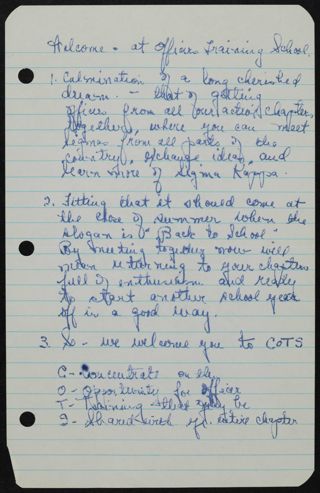 Welcome - at Officers Training School
1. Culmination of a long cherished
dream. - that of getting
officers from all our active chapters
together, where you can meet
Sigmas from all parts of the
country, exchange ideas, and
learn more of Sigma Kappa.
2. Fitting that it should come at
the close of summer when the
slogan is "Back to School"
By meeting together now will
mean returning to your chapters
full of enthusiasm and ready
to start another school year
off in a good way.
3. So - we welcome you to COTS
C - Concentrate on the
O - Opportunity for officer
T - Training that may be
S - Shared with yr. entire chapter